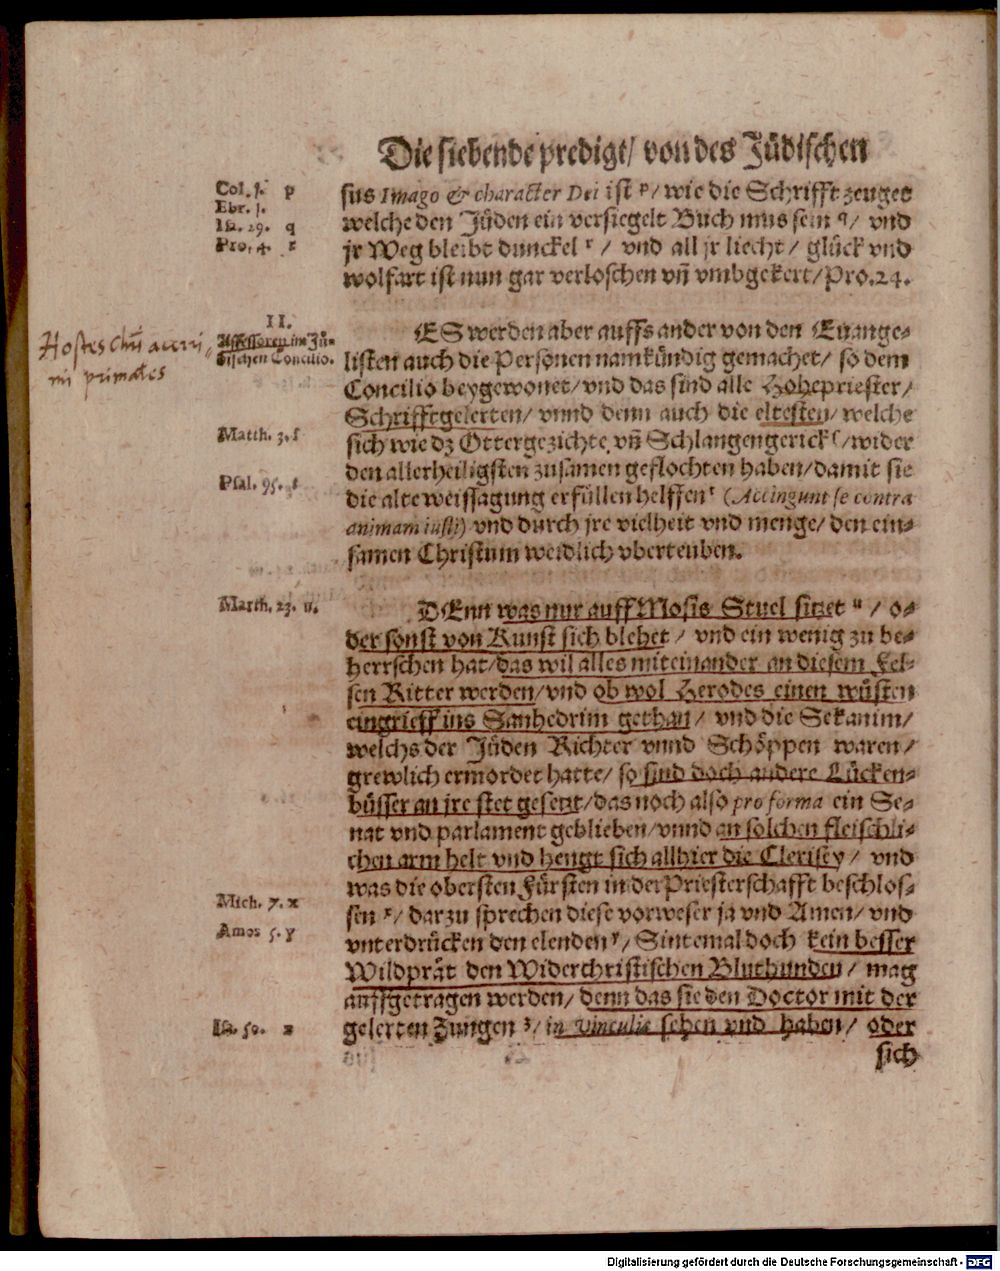 Die siebende predigt/ von des Jüdischen
Col. 1. p
Ebr. 1.
Isa. 29. q
Pro. 4. r
sus Imago & character Dei ist p/ wie die Schrifft zeuget
welche den Jüden ein versiegelt Buch mus sein q/ vnd
jr Weg bleibt dunckel r/ vnd all jr liecht/ glück vnd
wolfart ist nun gar verloschen vñ vmbgekert/ Pro. 24.
II.
Assessoren im Jü-
dischen Concilio.
Hostes Chri acerri-
mi primates
ES werden aber auffs ander von den Euange-
listen auch die Personen namkündig gemachet/ so dem
Concilio beygewonet/ vnd das sind alle Hohepriester/
Schrifftgelerten/ vnnd denn auch die eltesten/ welche
Matth. 3. s
sich wie dz Ottergezichte vñ Schlangengerick s/ wider
den allerheiligsten zusamen geflochten haben/ damit sie
Psal. 95. t
die alte weissagung erfüllen helffen t (Accingunt se contra
animam iusti) vnd durch jre vielheit vnd menge/ den ein-
samen Christum weidlich vberteuben.
Matth. 23. u.
DEnn was nur auff Mosis Stuel sitzet u/ o-
der sonst von Kunst sich blehet/ vnd ein wenig zu be-
herrschen hat/ das wil alles miteinander an diesem Fel-
sen Ritter werden/ vnd ob wol Herodes einen wüsten
eingrieff ins Sanhedrim gethan/ vnd die Sekanim/
welchs der Jüden Richter vnnd Schöppen waren/
grewlich ermordet hatte/ so sind doch andere Lücken-
büsser an jre stet gesetzt/ das noch also pro forma ein Se-
nat vnd parlament geblieben/ vnnd an solchen fleischli-
chen arm helt vnd hengt sich allhier die Clerisey/ vnd
was die obersten Fürsten in der Priesterschafft beschlos-
Mich. 7. x
sen x/ darzu sprechen diese vorweser ja vnd Amen/ vnd
Amos 5. y
vnterdrücken den elenden y/ Sintemal doch kein besser
Wildprät den Widerchristischen Bluthunden/ mag
auffgetragen werden/ denn das sie den Doctor mit der
Isa. 50. z
gelerten Zungen z/ in vinculis sehen vnd haben/ oder
sich
Digitalisierung gefördert durch die Deutsche Forschungsgemeinschaft - DFG